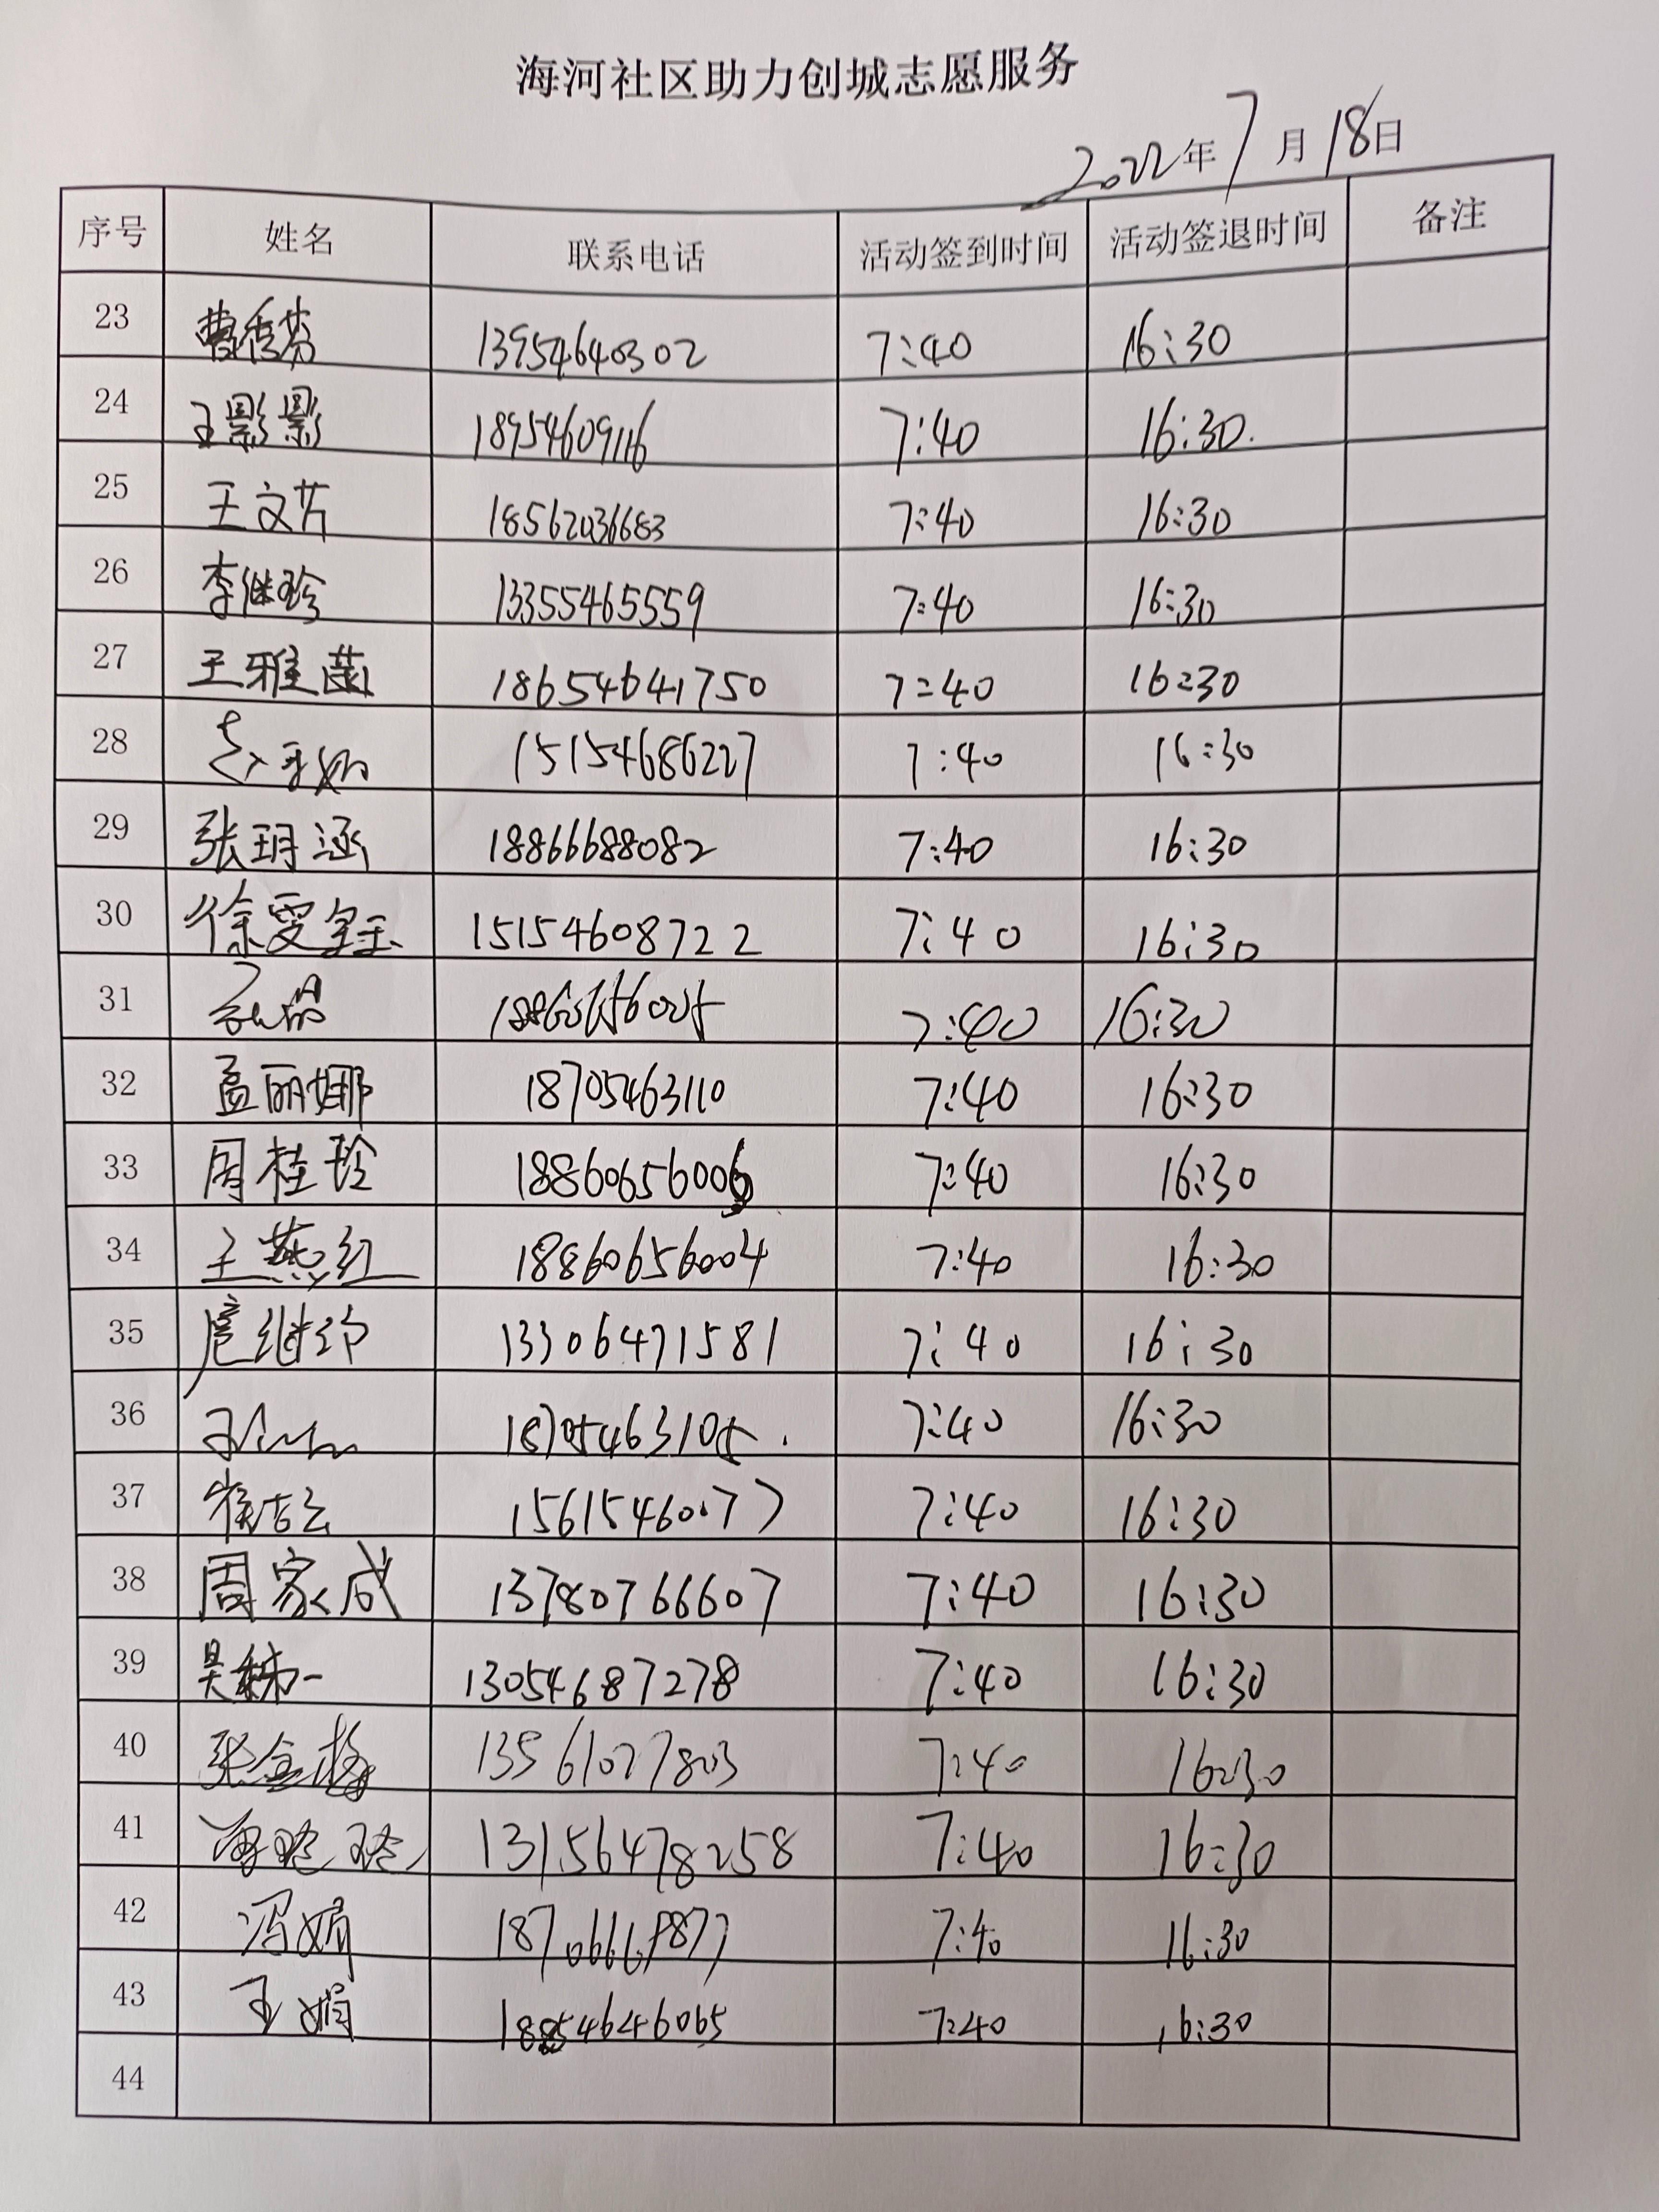 海河社区助力创城志愿服务
2022年7月18日
序号 姓名 联系电话 活动签到时间 活动签退时间 备注
23 曹秀芬 13954640302 7:40 16:30
24 王影影 18954609116 7:40 16:30.
25 王文芳 18562036683 7:40 16:30
26 李继珍 13355465559 7:40 16:30
27 王雅茵 18654641750 7:40 16:30
28 15154686227 7:40 16:30
29 张玥涵 18866688082 7:40 16:30
30 徐雯钰 15154608722 7:40 16:30
31 18860656005 7:40 16:30
32 孟丽娜 18705463110 7:40 16:30
33 周桂玲 18860656006 7:40 16:30
34 王燕红 18860656004 7:40 16:30
35 扈继玲 13306471581 7:40 16:30
36 18705463105. 7:40 16:30
37 15615460077 7:40 16:30
38 周家成 13780766607 7:40 16:30
39 13054687278 7:40 16:30
40 张金梅 13561027803 7:40 16:30
41 13156478258 7:40 16:30
42 冯娟 7:40 16:30
43 王娟 18854646065 7:40 16:30
44